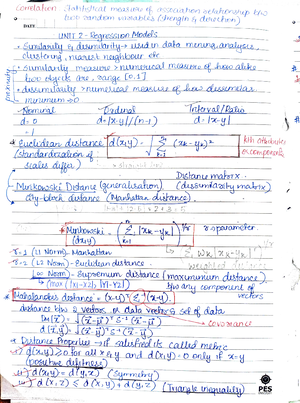 Correlation: Statistical measure of association relationship b/w
two random variables (strength & direction)
DATE:
UNIT 2 - Regression Models
• Similarity & dissimilarity → used in data mining, analysis,
clustering, nearest neighbour etc
• Similarity measure → numerical measure of how alike
two objects are, range [0,1]
proximity
• dissimilarity → numerical measure of how dissimilar
minimum = 0
Nominal Ordinal Interval/Ratio
d=0 d=|x-y|/(n-1) d=|x-y|
=1
* Euclidean distance d(x,y) = √ Σ (xk-yk)² kth attributes
(standardization if or components
scales differ)
Distance matrix
Minkowski Distance (generalisation) (dissimilarity matrix)
city-block distance (Manhattan distance)
* Minkowski = ( Σ |xk-yk|^r )^1/r r → parameter
d(x,y) k=1
r=1 (L1 Norm) - Manhattan
r=2 (L2 Norm) - Euclidean distance
∞ Norm - Supremum distance (maximum distance
b/w any component of
vectors
* Mahalanobis distance = (x-y)ᵀ Σ⁻¹ (x-y)
distance b/w 2 vectors or data vector & set of data
covariance
→ Distance Properties → if satisfied its called metric
i) d(x,y) ≥ 0 for all x & y and d(x,y) = 0 only if x=y
(positive definiteness)
ii) d(x,y) = d(y,x) (Symmetry)
iii) d(x,z) ≤ d(x,y) + d(y,z) (Triangle inequality)
PES